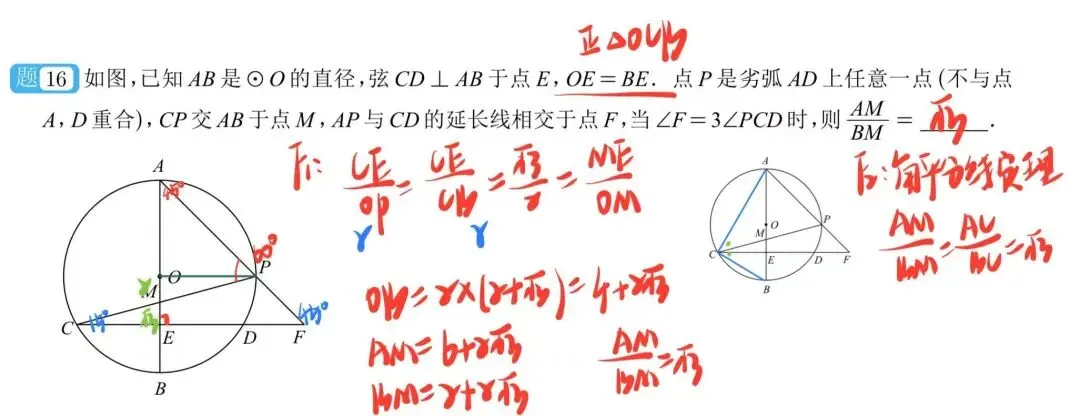 正△OCB
题16 如图,已知 AB 是 ⊙O 的直径,弦 CD ⊥ AB 于点 E,OE = BE. 点 P 是劣弧 AD 上任意一点(不与点
A,D 重合),CP 交 AB 于点 M,AP 与 CD 的延长线相交于点 F,当 ∠F = 3∠PCD 时,则 AM/BM = √3.
A
45°
60°
P
O
2
M
√3
C
15°
E
D
45°
F
B
F₁: CE/OP = CE/CB = √3/2 = ME/OM
2 2
OB = 2×(2+√3) = 4+2√3
AM = 6+2√3
BM = 2+2√3
AM/BM = √3
A
O
P
M
C
E
D
F
B
F₂: 角平分线定理
AM/BM = AC/BC = √3